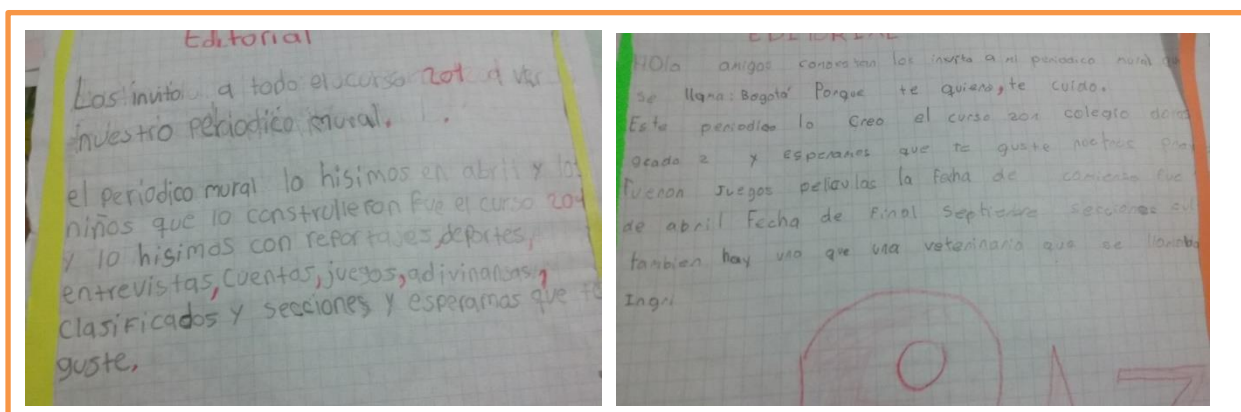 Editorial
Los invito a todo el curso 201 a ver
nuestro periodico mural.
el periodico mural lo hisimos en abril y los
niños que lo construlleron fue el curso 201
y lo hisimos con reportajes, deportes,
entrevistas, cuentos, juegos, adivinansas,
clasificados y secciones y esperamos que te
guste.
EDITORIAL
HOla amigos los invito a mi periodico mural que
se llama: Bogotá Porque te quiero, te cuido.
Este periodico lo creo el curso 201 colegio
grado 2 y esperamos que te guste
fueron juegos peliculas la fecha de comienso fue
de abril Fecha de Final Septiembre secciones
tambien hay uno que una veterinaria que se llamaba
Ingri